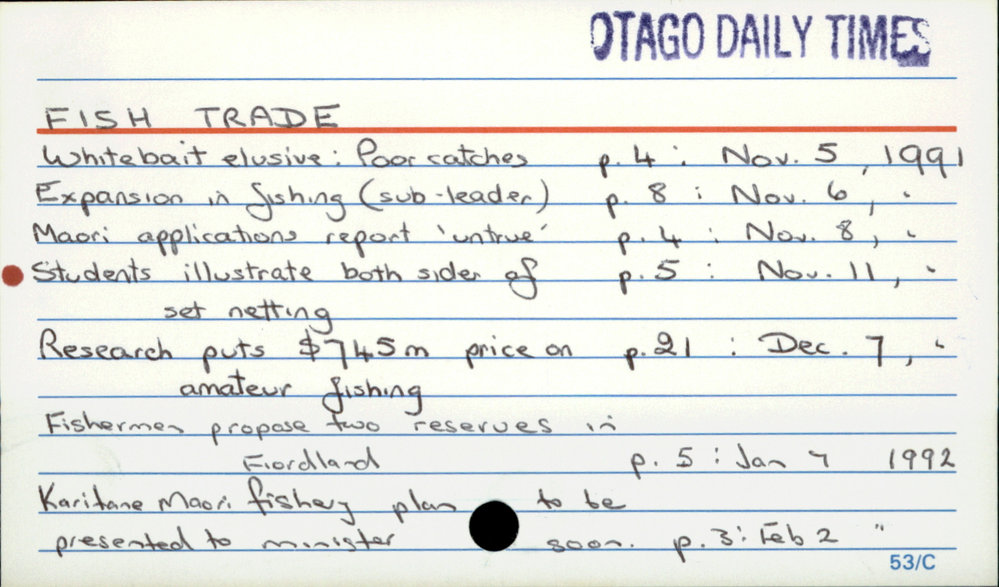 OTAGO DAILY TIMES
FISH TRADE
Whitebait elusive: Poor catches p. 4 : Nov. 5, 1991
Expansion in fishing (sub-leader) p. 8 : Nov. 6, "
Maori applications report 'untrue' p. 4 : Nov. 8, "
Students illustrate both sides of p. 5 : Nov. 11, "
set netting
Research puts $745m price on p. 21 : Dec. 7, "
amateur fishing
Fishermen propose two reserves in
Fiordland p. 5 : Jan 7 1992
Karitane Maori fishery plan to be
presented to minister soon. p. 3 : Feb 2 "
53/C